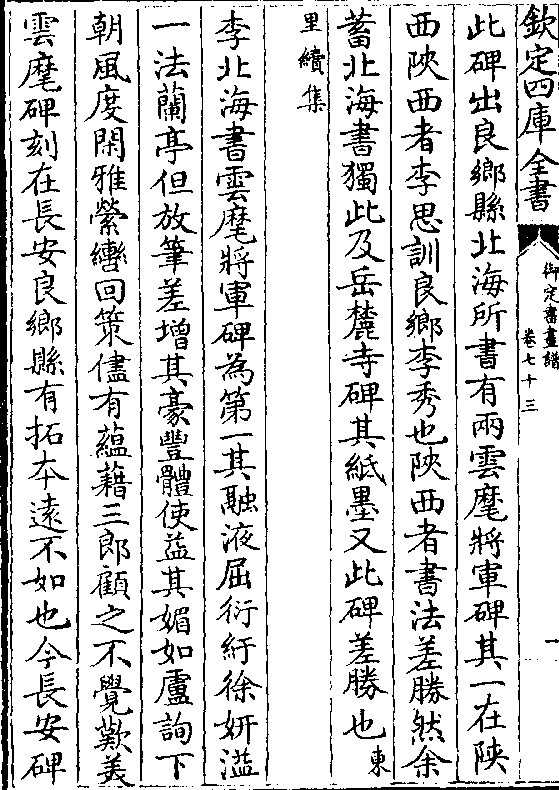 欽定四庫全書
御定書畫譜
卷七十三
一
此碑出良鄉縣北海所書有兩雲麾將軍碑其一在陜
西陜西者李思訓良鄉李秀也陜西者書法差勝然余
蓄北海書獨此及岳麓寺碑其紙墨又此碑差勝也東
里續集
李北海書雲麾將軍碑為第一其融液屈衍紆徐妍溢
一法蘭亭但放筆差增其豪豐體使益其媚如盧詢下
朝風度閑雅縈轡回策儘有蘊藉三郎顧之不覺歎美
雲麾碑刻在長安良鄉縣有拓本遠不如也今長安碑